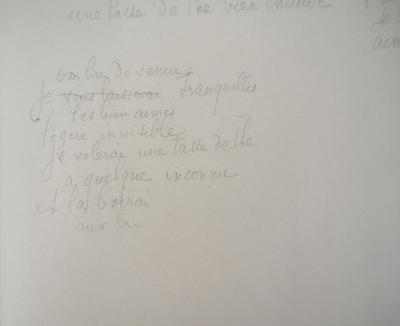 une tasse de thé bien chaude
ombre devenue
je vous laisserai tranquilles
les bien aimés
légère invisible
je volerai une tasse de thé
a quelque inconnu
et la boirai
aux